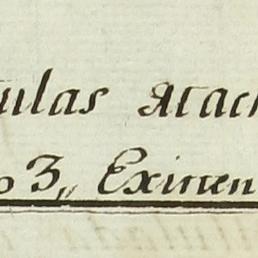 ulas atach
o 3,, Eximen